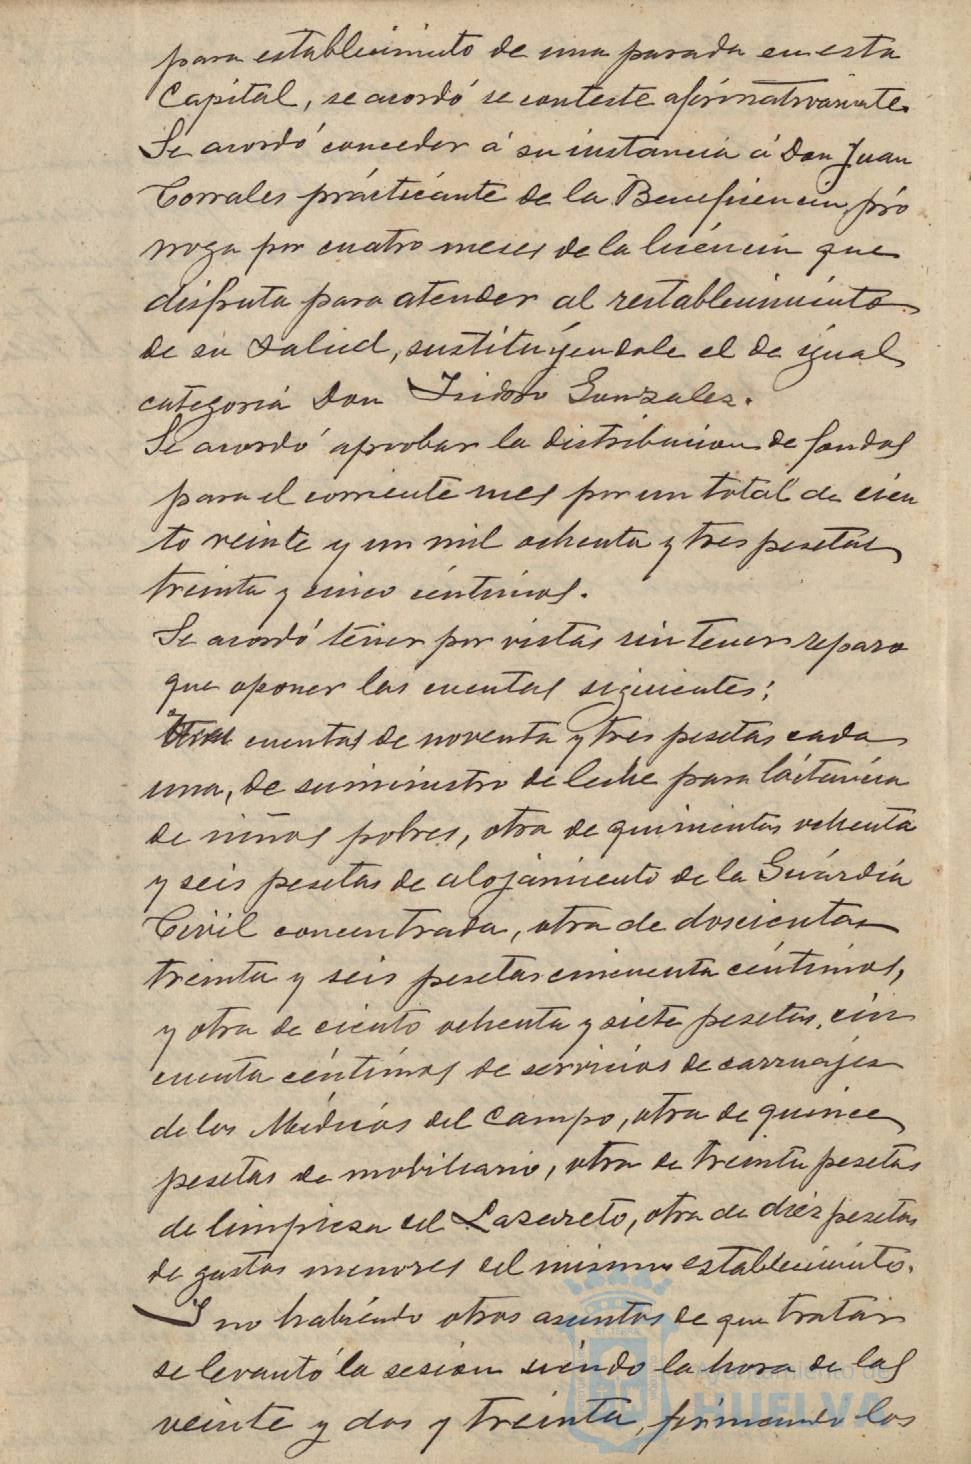 para establecimiento de una parada en esta
Capital, se acordó se conteste afirmativamente.
Se acordó conceder á su instancia á Don Juan
Corrales practicante de la Beneficencia, pró
rroga por cuatro meses de la licencia que
disfruta para atender al restablecimiento
de su salud, sustituyendole el de igual
categoria Don Isidoro Gonzalez.
Se acordó aprobar la distribucion de fondos
para el corriente mes por un total de cien
to veinte y un mil ochenta y tres pesetas
treinta y cinco céntimos.
Se acordó tener por vistas sin tener reparo
que oponer las cuentas siguientes:
cuentas de noventa y tres pesetas cada
una, de suministro de leche para lactancia
de niños pobres, otra de quinientas ochenta
y seis pesetas de alojamiento de la Guardia
Civil concentrada, otra de doscientas
treinta y seis pesetas cincuenta céntimos,
y otra de ciento ochenta y siete pesetas, cin
cuenta céntimos de servicios de carruajes
de los Médicos del Campo, otra de quince
pesetas de mobiliario, otra de treinta pesetas
de limpieza del Lazareto, otra de diez pesetas
de gastos menores del mismo establecimiento.
Y no habiendo otros asuntos de que tratar
se levantó la sesion siendo la hora de las
veinte y dos y treinta, firmando los
Ayuntamiento de
HUELVA